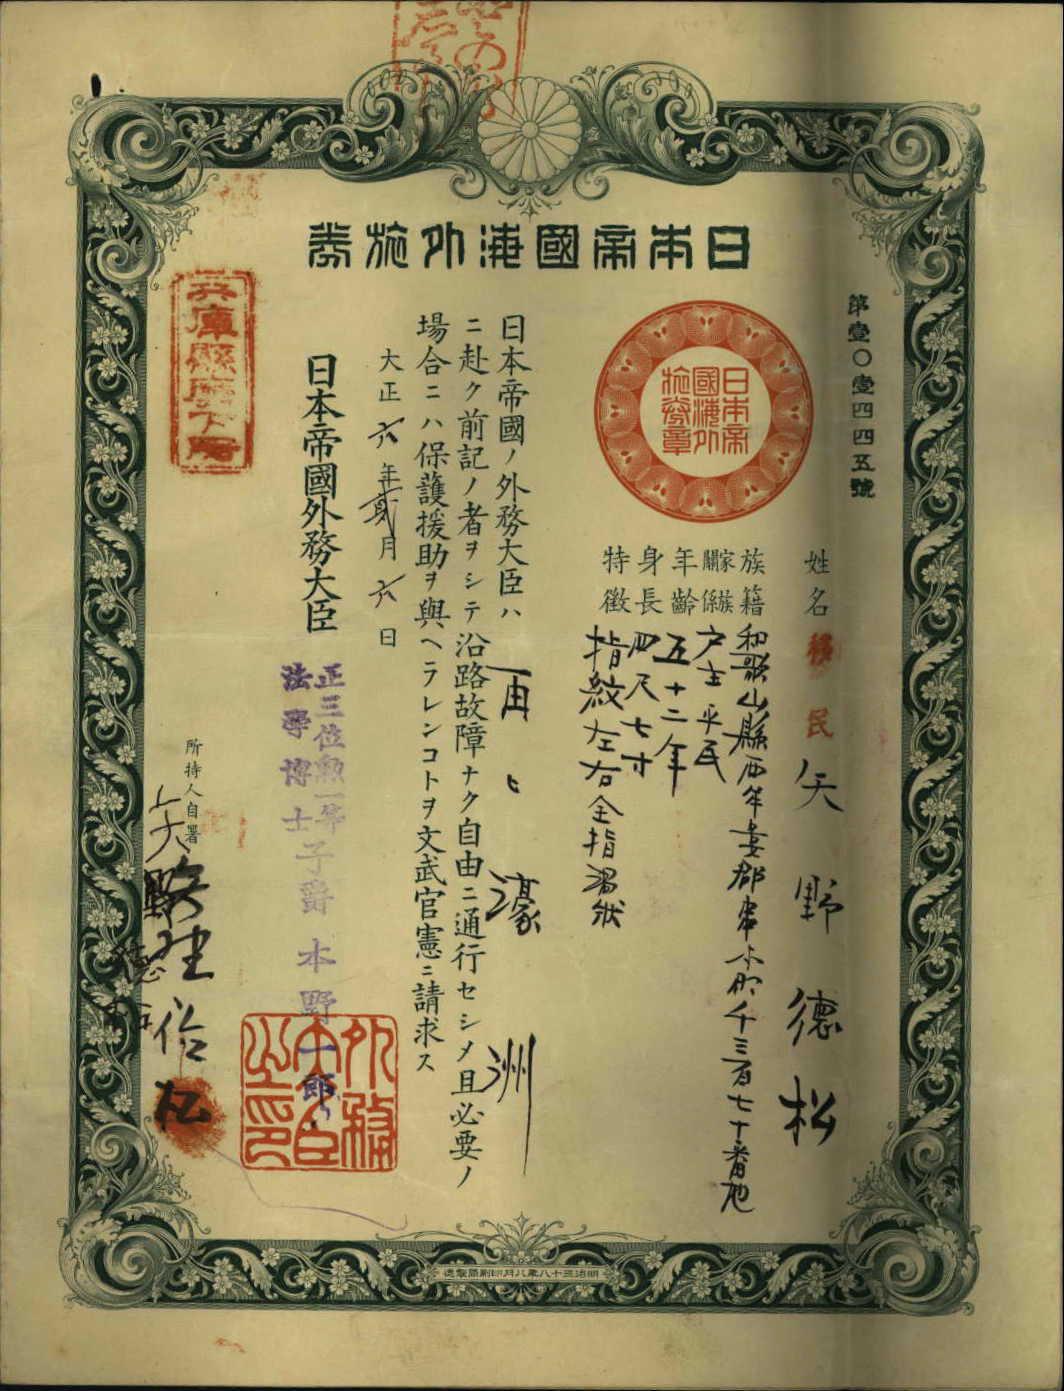 日本帝國海外旅券
第壹〇壹四四五號
日本帝
國海外
旅券章
姓名 移民 矢野德松
族籍 和歌山縣西牟婁郡串本町千三百七十番地
家族關係 戶主 平民
年齡 五十二年
身長 四尺七寸
特徵 指紋左右全指渦狀
日本帝國ノ外務大臣ハ 再ヒ濠洲
ニ赴ク前記ノ者ヲシテ沿路故障ナク自由ニ通行セシメ且必要ノ
場合ニハ保護援助ヲ與ヘラレンコトヲ文武官憲ニ請求ス
大正六年貳月六日
日本帝國外務大臣
正三位勲一等
法學博士
子爵 本野一郎
外務
大臣
之印
兵庫縣廳下附
所持人自署
矢野
德松
明治三十八年八月印刷局製造